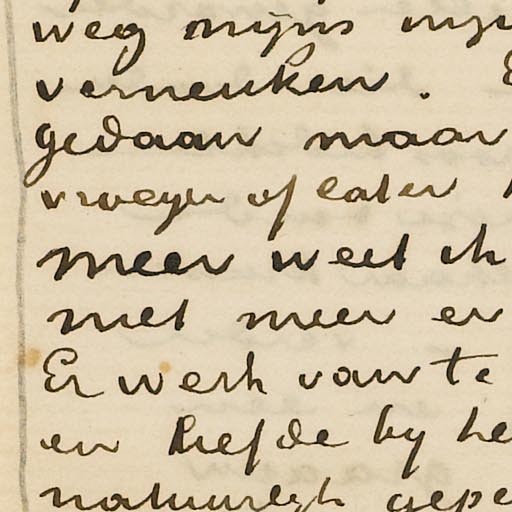 weg mijns mij
verneuken.
gedaan maar
vroeger of later
meer weet ik
niet meer er
Er werk van te
en liefde by he
natuurlijk gepe